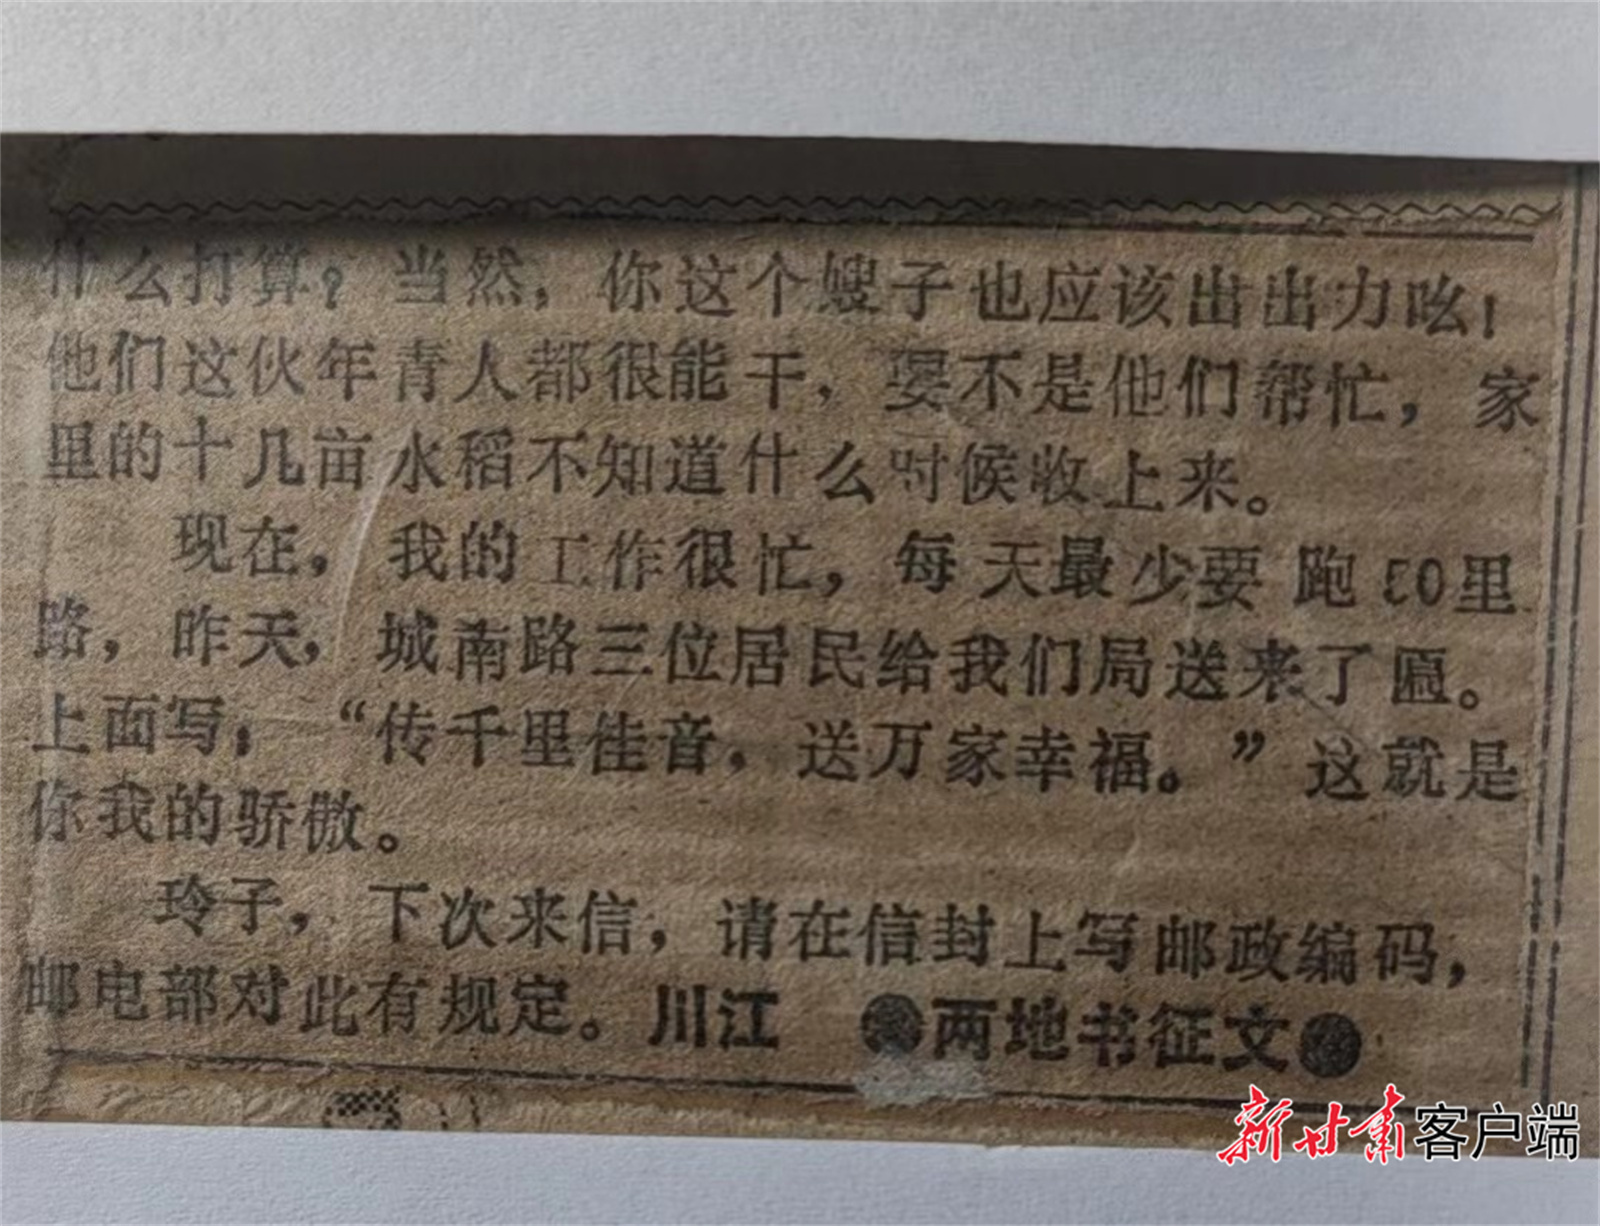 什么打算？当然，你这个嫂子也应该出出力吆！
他们这伙年青人都很能干，要不是他们帮忙，家
里的十几亩水稻不知道什么时候收上来。
现在，我的工作很忙，每天最少要跑50里
路，昨天，城南路三位居民给我们局送来了匾。
上面写；“传千里佳音，送万家幸福。”这就是
你我的骄傲。
玲子，下次来信，请在信封上写邮政编码，
邮电部对此有规定。川江 两地书征文
新甘肃客户端